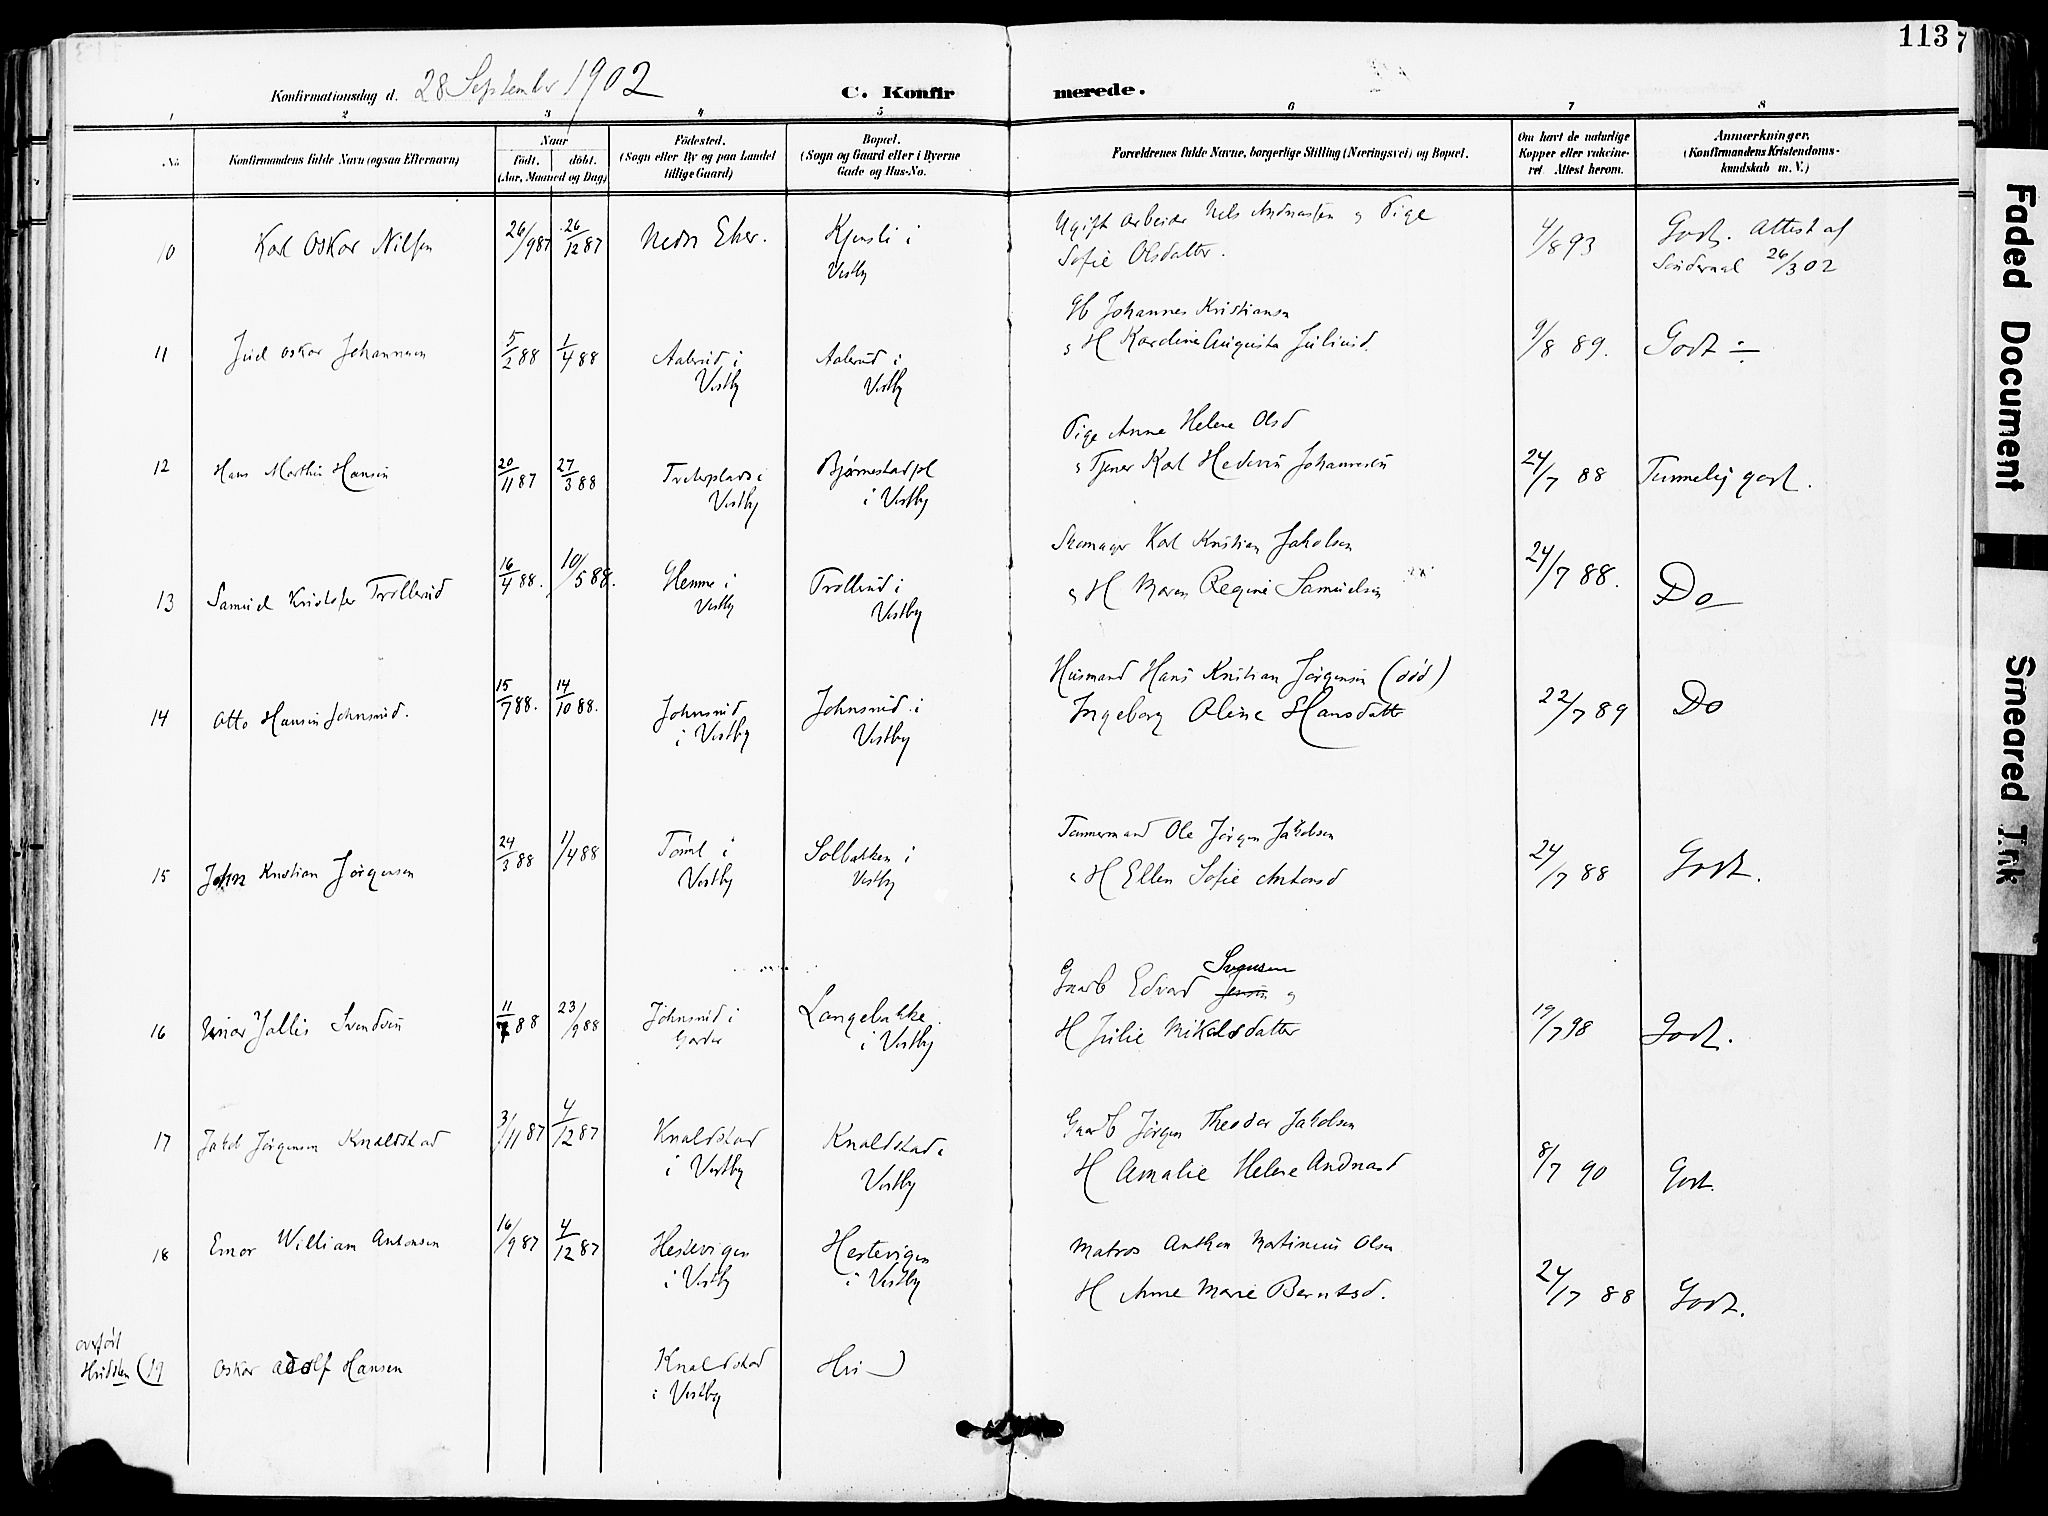 113
Konfirmationsdag d. 28 September 1902
C. Konfirmerede.
1 2 3 4 5 6 7 8
No.
Konfirmandens fulde Navn (ogsaa Efternavn)
Naar
födt. döbt.
(Aar, Maaned og Dag)
Födested.
(Sogn eller By og paa Landet
tillige Gaard)
Bopæl.
(Sogn og Gaard eller i Byerne
Gade og Hus-No.
Forældrenes fulde Navne, borgerlige Stilling (Næringsvei) og Bopæl.
Om havt de naturlige
Kopper eller vakcine-
ret Attest herom.
Anmærkninger,
(Konfirmandens Kristendoms-
kundskab m. V.)
10 Karl Oskar Nilsen 26/9 87 26/12 87 Nedre Eker. Kjensli i
Vestby
Ugift Arbeider Nils Andreasen og Pige
Sofie Olsdatter.
4/8 93
Godt. Attest af
26/3 02
11 Juel Oskar Johannesen 5/2 88 1/4 88
Aalerud i
Vestby
Aalerud i
Vestby
Johannes Kristiansen
og H Karoline Augusta Juliusd.
9/8 89. Godt ÷
12 Hans Marthin Hansen 20/11 87 27/3 88
i
Vestby
Bjørnestadpl
i Vestby
Pige Anne Helene Olsd
og Tjener Karl Hedevin Johannesen
24/7 88 Temmelig godt.
13 Samuel Kristofer Trollerud 16/4 88. 10/5 88.
Hemme i
Vestby
Trollerud i
Vestby
Skomager Karl Kristian Jakobsen
og H Maren Regine Samuelsen
24/7 88. Do
14 Otto Hansen Johnsrud. 15/7 88. 14/10 88.
Johnsrud
i Vestby
Johnsrud i
Vestby
Husmand Hans Kristian Jørgensen (død)
Ingeborg Oline Hansdatter
22/7 89 Do
15 John Kristian Jørgensen 24/3 88 1/4 88
i
Vestby
Solbakken i
Vestby
Tømmermand Ole Jørgen Jakobsen
og H Ellen Sofie Antonsd
24/7 88 Godt.
16 Einar Svendsen 11/7 88 23/9 88
Johnsrud i
Garder
Langebakke
i Vestby
Gaardb Edvard Jensen Svensen og
H Julie Mikelsdatter
19/7 98 Godt.
17 Jakob Jørgensen Knaldstad 3/11 87 4/12 87
Knaldstad
i Vestby
Knaldstad i
Vestby
Gaardb Jørgen Theodor Jakobsen
H Amalie Helene Andreasd
8/7 90 Godt.
18 Einar William Antonsen 16/9 87 4/12 87
Hestevigen
i Vestby
Hestevigen
i Vestby
Matros Anthon Martinius Olsen
H Anne Marie Berntsd.
24/7 88 Godt.
overført
Hvidsten (19 Oskar Adolf Hansen
Knaldstad
i Vestby
Faded Document
Smeared Ink